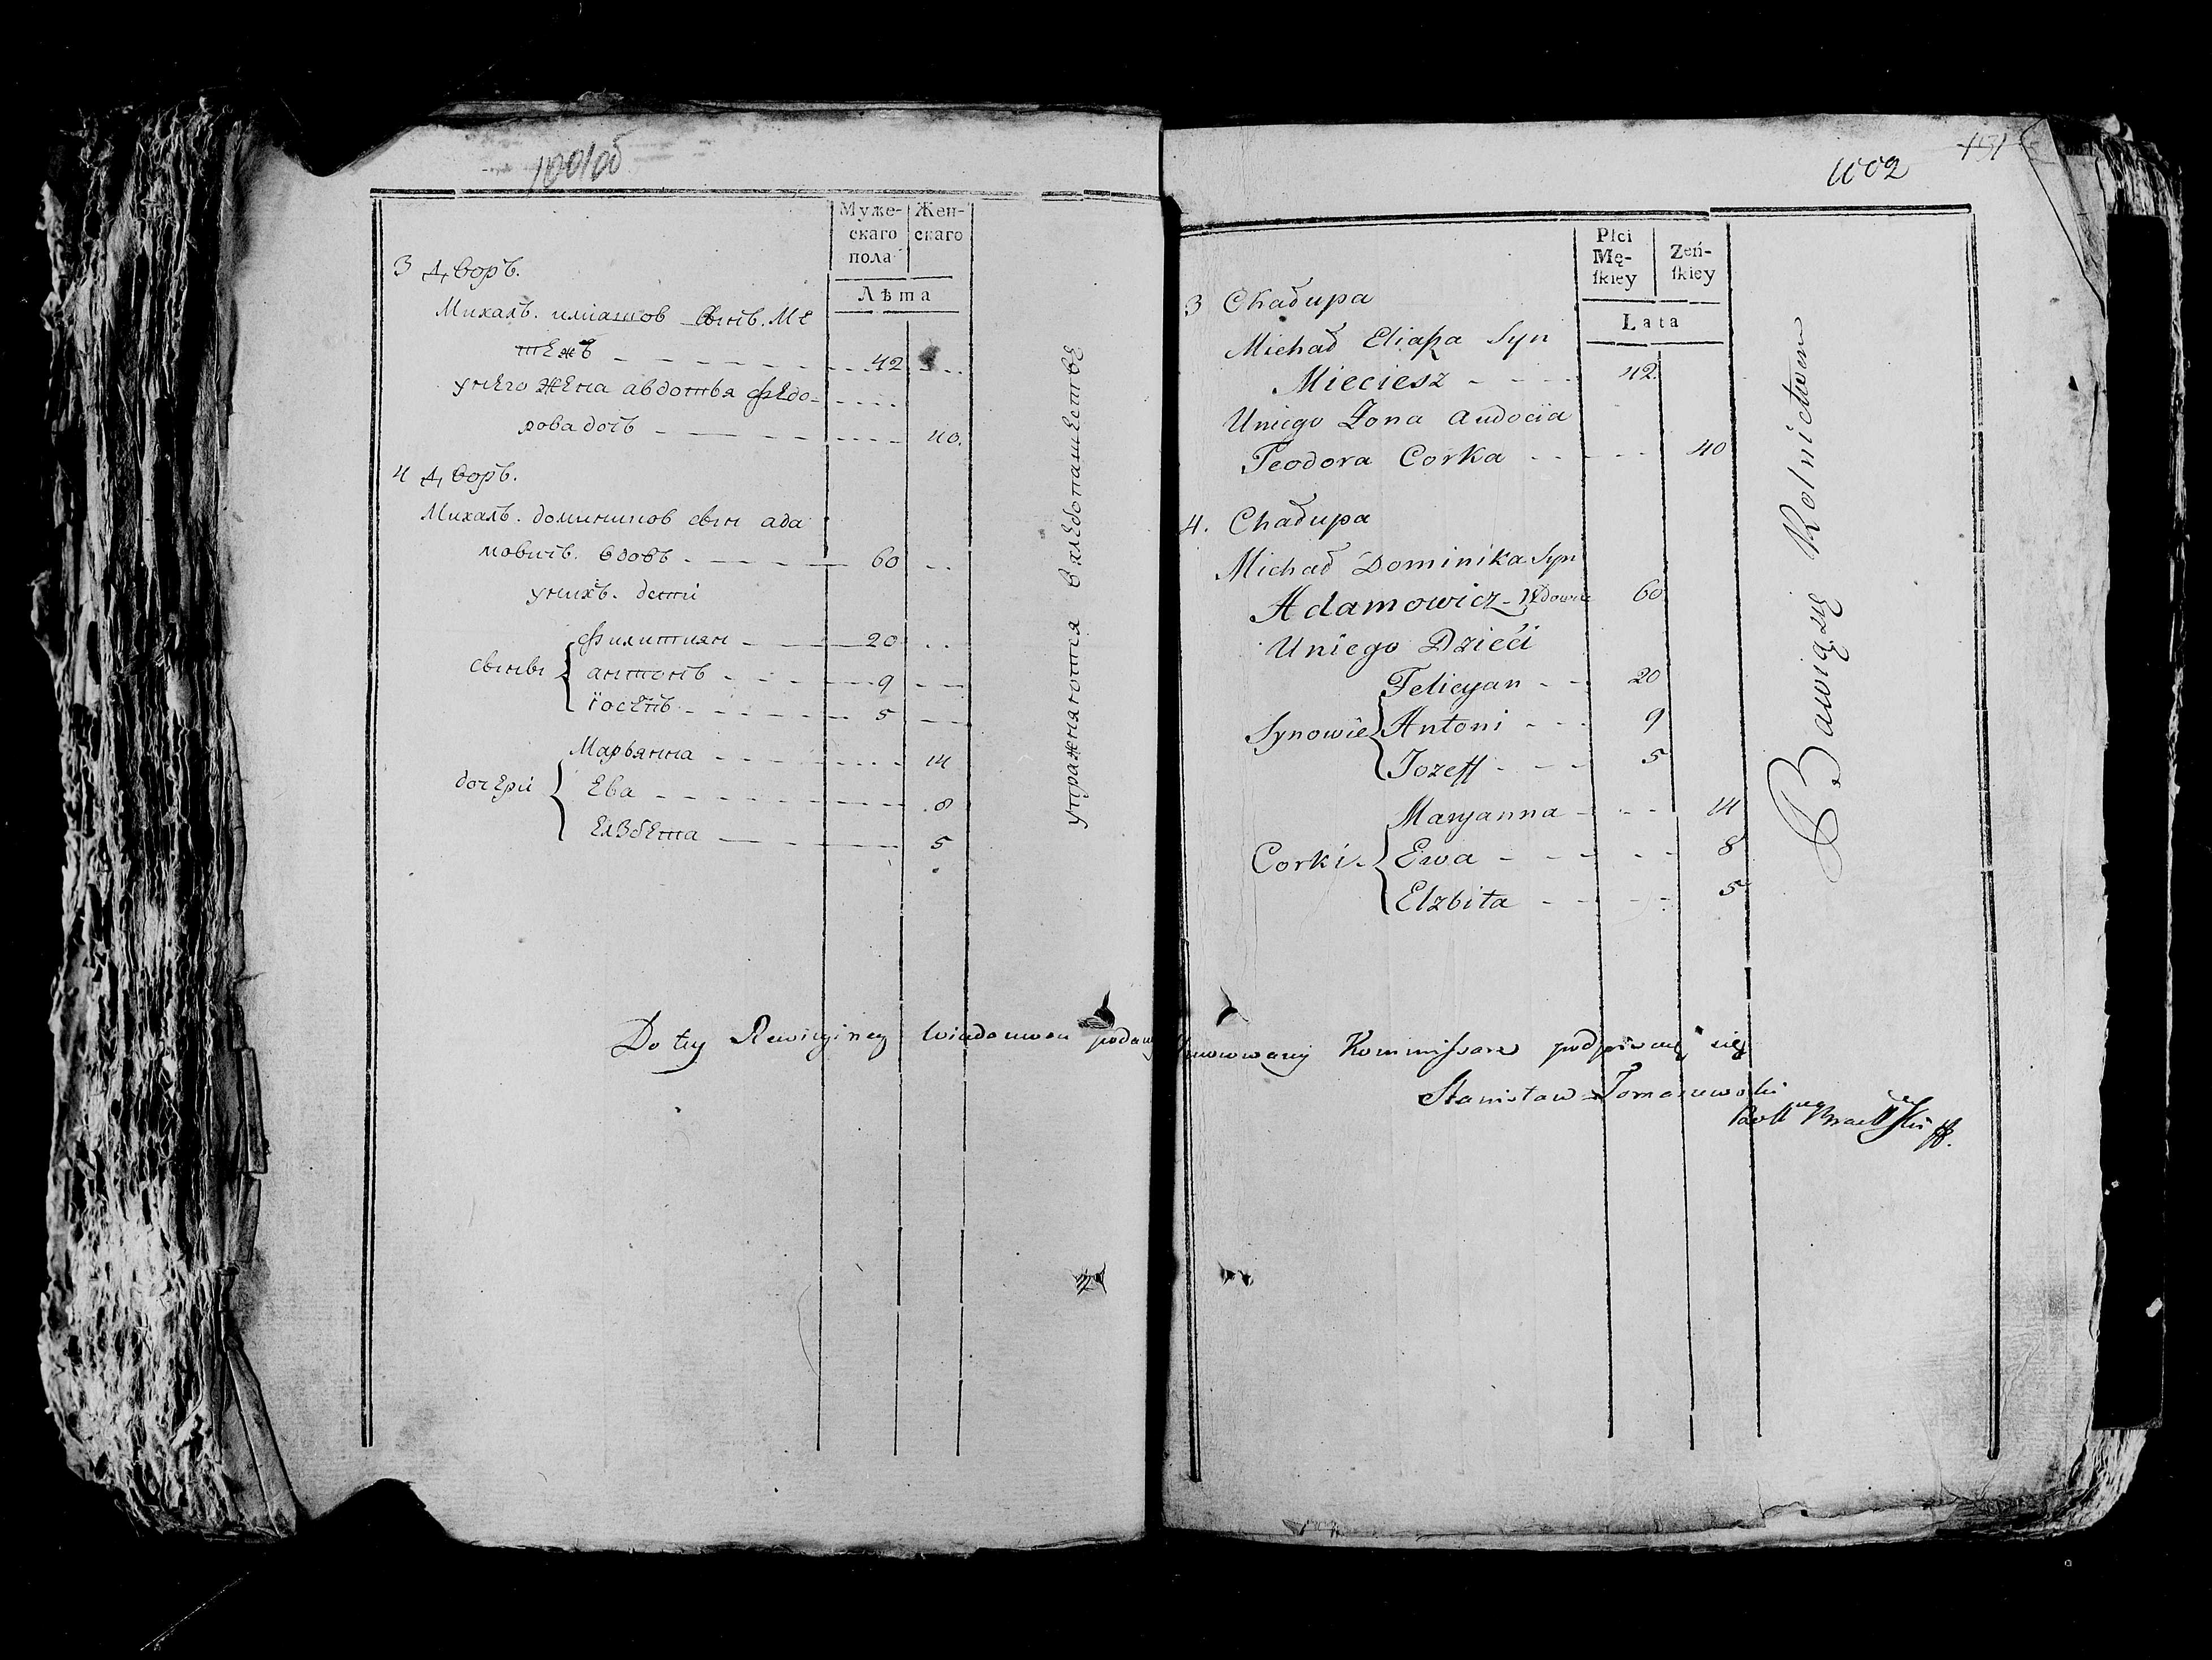 1001об
Муже-
скаго
пола
Жен-
скаго
Лѣта
3 Дворъ.
Михалъ. илиашов сынъ. Ме
тежъ 42
унего жена авдотья федо-
рова дочъ 40.
4 Дворъ.
Михалъ. домиников сын ада
мовичъ. вдовъ 60
унихъ. дети
сыны
филитиян 20
антонъ 9
іосепъ 5
дочери
Марьянна 14
Ева 8
Елзбета 5
упражняются в хлебопашестве
1002
151
Płci
Mę-
ſkiey
Zeń-
ſkiey
Lata
3 Chałupa
Michał Eliaſza Syn
Mieciesz 42
Uniego Zona Audocia
Teodora Corka 40
4. Chałupa
Michał Dominika Syn
Adamowicz - Wdowiec 60
Uniego Dzieci
Synowie
Felicyan 20
Antoni 9
Jozeff 5
Corki.
Maryanna 14
Ewa 8
Elzbita 5
Bawią się Rolnictwem
Do tey Rewizyiney Kommiſsarz podpisuię się
Stanisław Tomaszewski